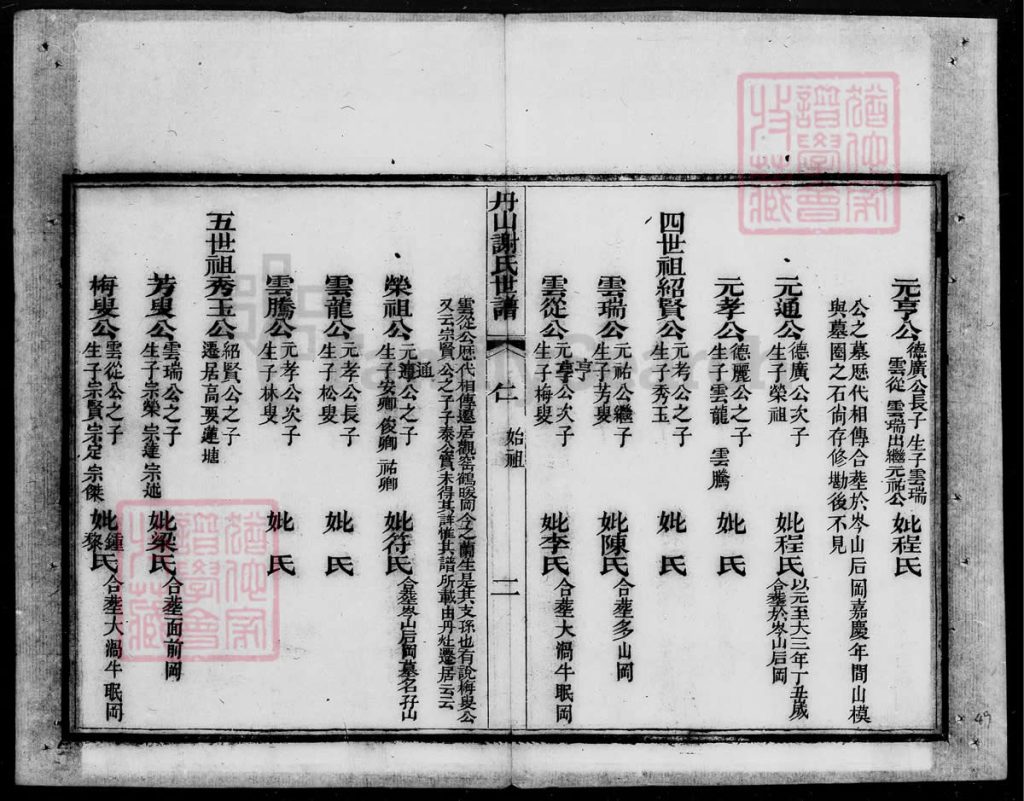 元亨公 德廣公長子 生子雲瑞 雲從 雲瑞出繼元祐公 妣程氏
公之墓歷代相傳合葬於岑山后岡嘉慶年間山模
與墓圈之石尙存修勘後不見
元通公 德廣公次子 生子榮祖 妣程氏 以元至大三年丁丑歲 合葬於岑山后岡
元孝公 德麗公之子 生子雲龍 雲騰 妣 氏
四世祖紹賢公 元考公之子 生子秀玉 妣 氏
雲瑞公 元祐公繼子 生子芳叟 妣陳氏 合葬多山岡
雲從公 元亨公次子 生子梅叟 妣李氏 合葬大渦牛眠岡
亨
丹山謝氏世譜 仁 始祖 二
雲從公歷代相傳遷居觀窑鶴暖岡今之蘭生是其支孫也有說梅叟公
又云宗賢公之子子泰公實未得其詳惟其譜所載由丹灶遷居云云
通
榮祖公 元通公之子 生子安卿 俊卿 祐卿 妣符氏 合葬岑山后岡墓名孖山
雲龍公 元孝公長子 生子松叟 妣 氏
雲騰公 元孝公次子 生子林叟 妣 氏
五世祖秀玉公 紹賢公之子 遷居高要蓮塘
芳叟公 雲瑞公之子 生子宗榮 宗蓮 宗述 妣梁氏 合葬面前岡
梅叟公 雲從公之子 生子宗賢 宗定 宗傑 妣鍾黎氏 合葬大渦牛眠岡
49